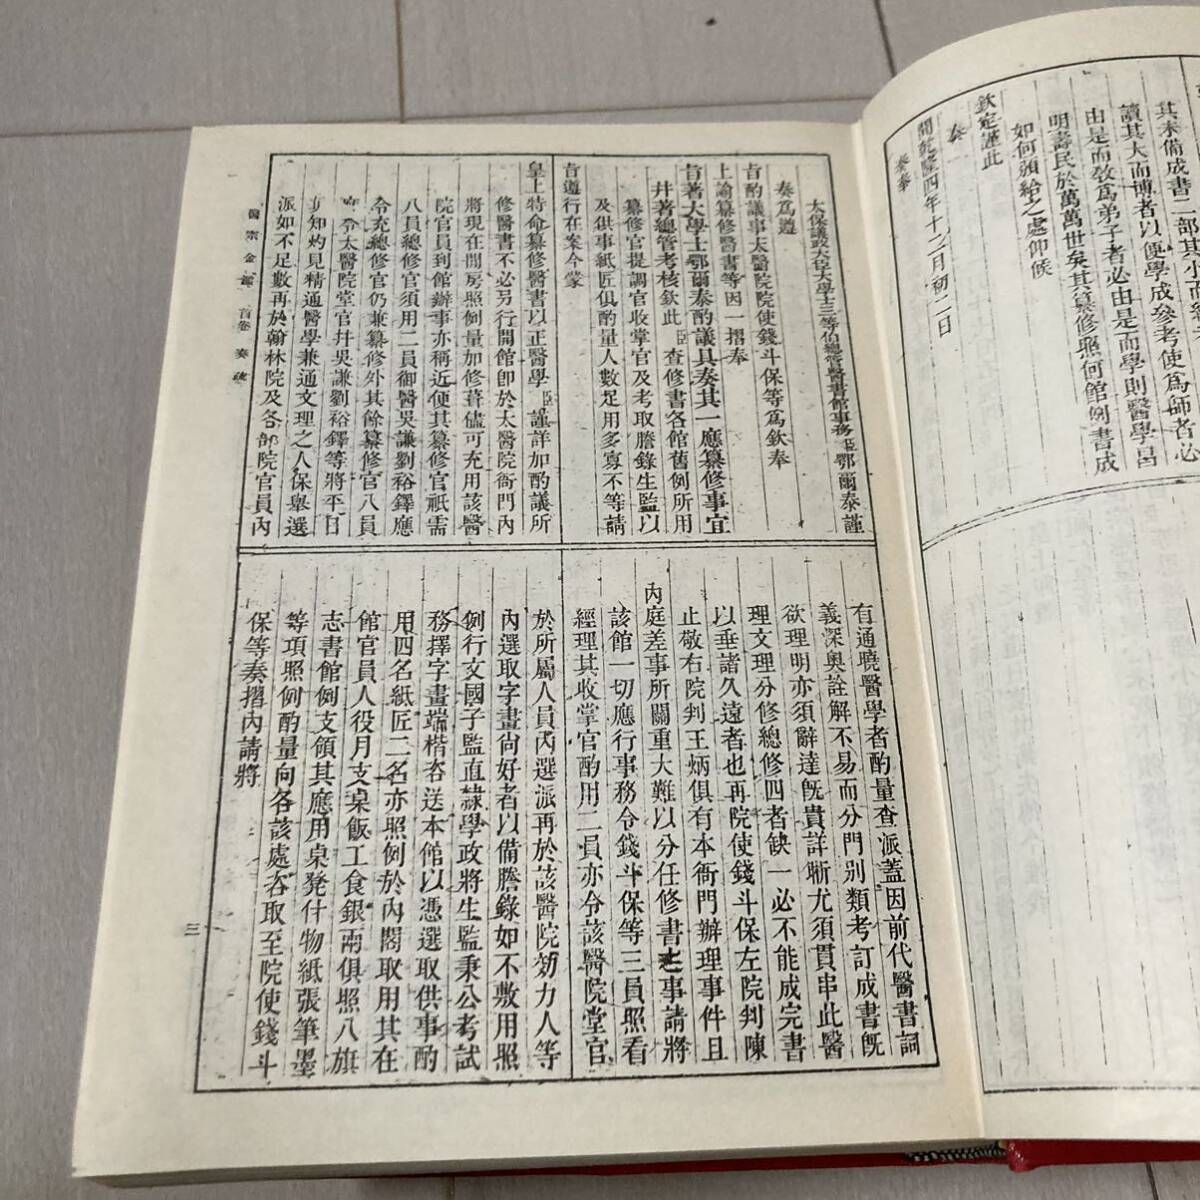 其未備成書二部其小而經
讀其大而博者以便學成參考使為師者必
由是而教為弟子者必由是而學則醫學昌
明壽民於萬萬世矣其纂修照何館例書成
如何頒給之處仰候
欽定謹此
奏
乾隆四年十二月初二日
太保議政大臣大學士三等伯總管醫書館事務臣鄂爾泰謹
奏為遵
旨酌議事太醫院院使錢斗保等為欽奉
上諭纂修醫書等因一摺奉
旨著大學士鄂爾泰酌議具奏其一應纂修事宜
并著總管考核欽此臣查修書各館舊例所用
纂修官提調官收掌官及考取謄錄生監以
及供事紙匠俱酌量人數足用多寡不等請
旨遵行在案今蒙
皇上特命纂修醫書以正醫學臣謹詳加酌議所
修醫書不必另行開館卽於太醫院衙門內
將現在閒房照例量加修葺儘可充用該醫
院官員到館辦事亦稱近便其纂修官祇需
八員總修官須用二員御醫吳謙劉裕鐸應
令充總修官仍兼纂修外其餘纂修官八員
令太醫院堂官幷吳謙劉裕鐸等將平日
知灼見精通醫學兼通文理之人保舉選
派如不足數再於翰林院及各部院官員內
有通曉醫學者酌量查派蓋因前代醫書詞
義深奧詮解不易而分門別類考訂成書旣
欲理明亦須辭達旣貴詳晰尤須貫串此醫
理文理分修總修四者缺一必不能成完書
以垂諸久遠者也再院使錢斗保左院判陳
止敬右院判王炳俱有本衙門辦理事件且
內庭差事所關重大難以分任修書之事請將
該館一切應行事務令錢斗保等三員照看
經理其收掌官酌用二員亦令該醫院堂官
於所屬人員內選派再於該醫院効力人等
內選取字畫尙好者以備謄錄如不敷用照
例行文國子監直隸學政將生監秉公考試
務擇字畫端楷咨送本館以憑選取供事酌
用四名紙匠二名亦照例於內閣取用其在
館官員人役月支桌飯工食銀兩俱照八旗
志書館例支領其應用桌凳什物紙張筆墨
等項照例酌量向各該處咨取至院使錢斗
保等奏摺內請將
醫宗金鑑 首卷 奏疏
三